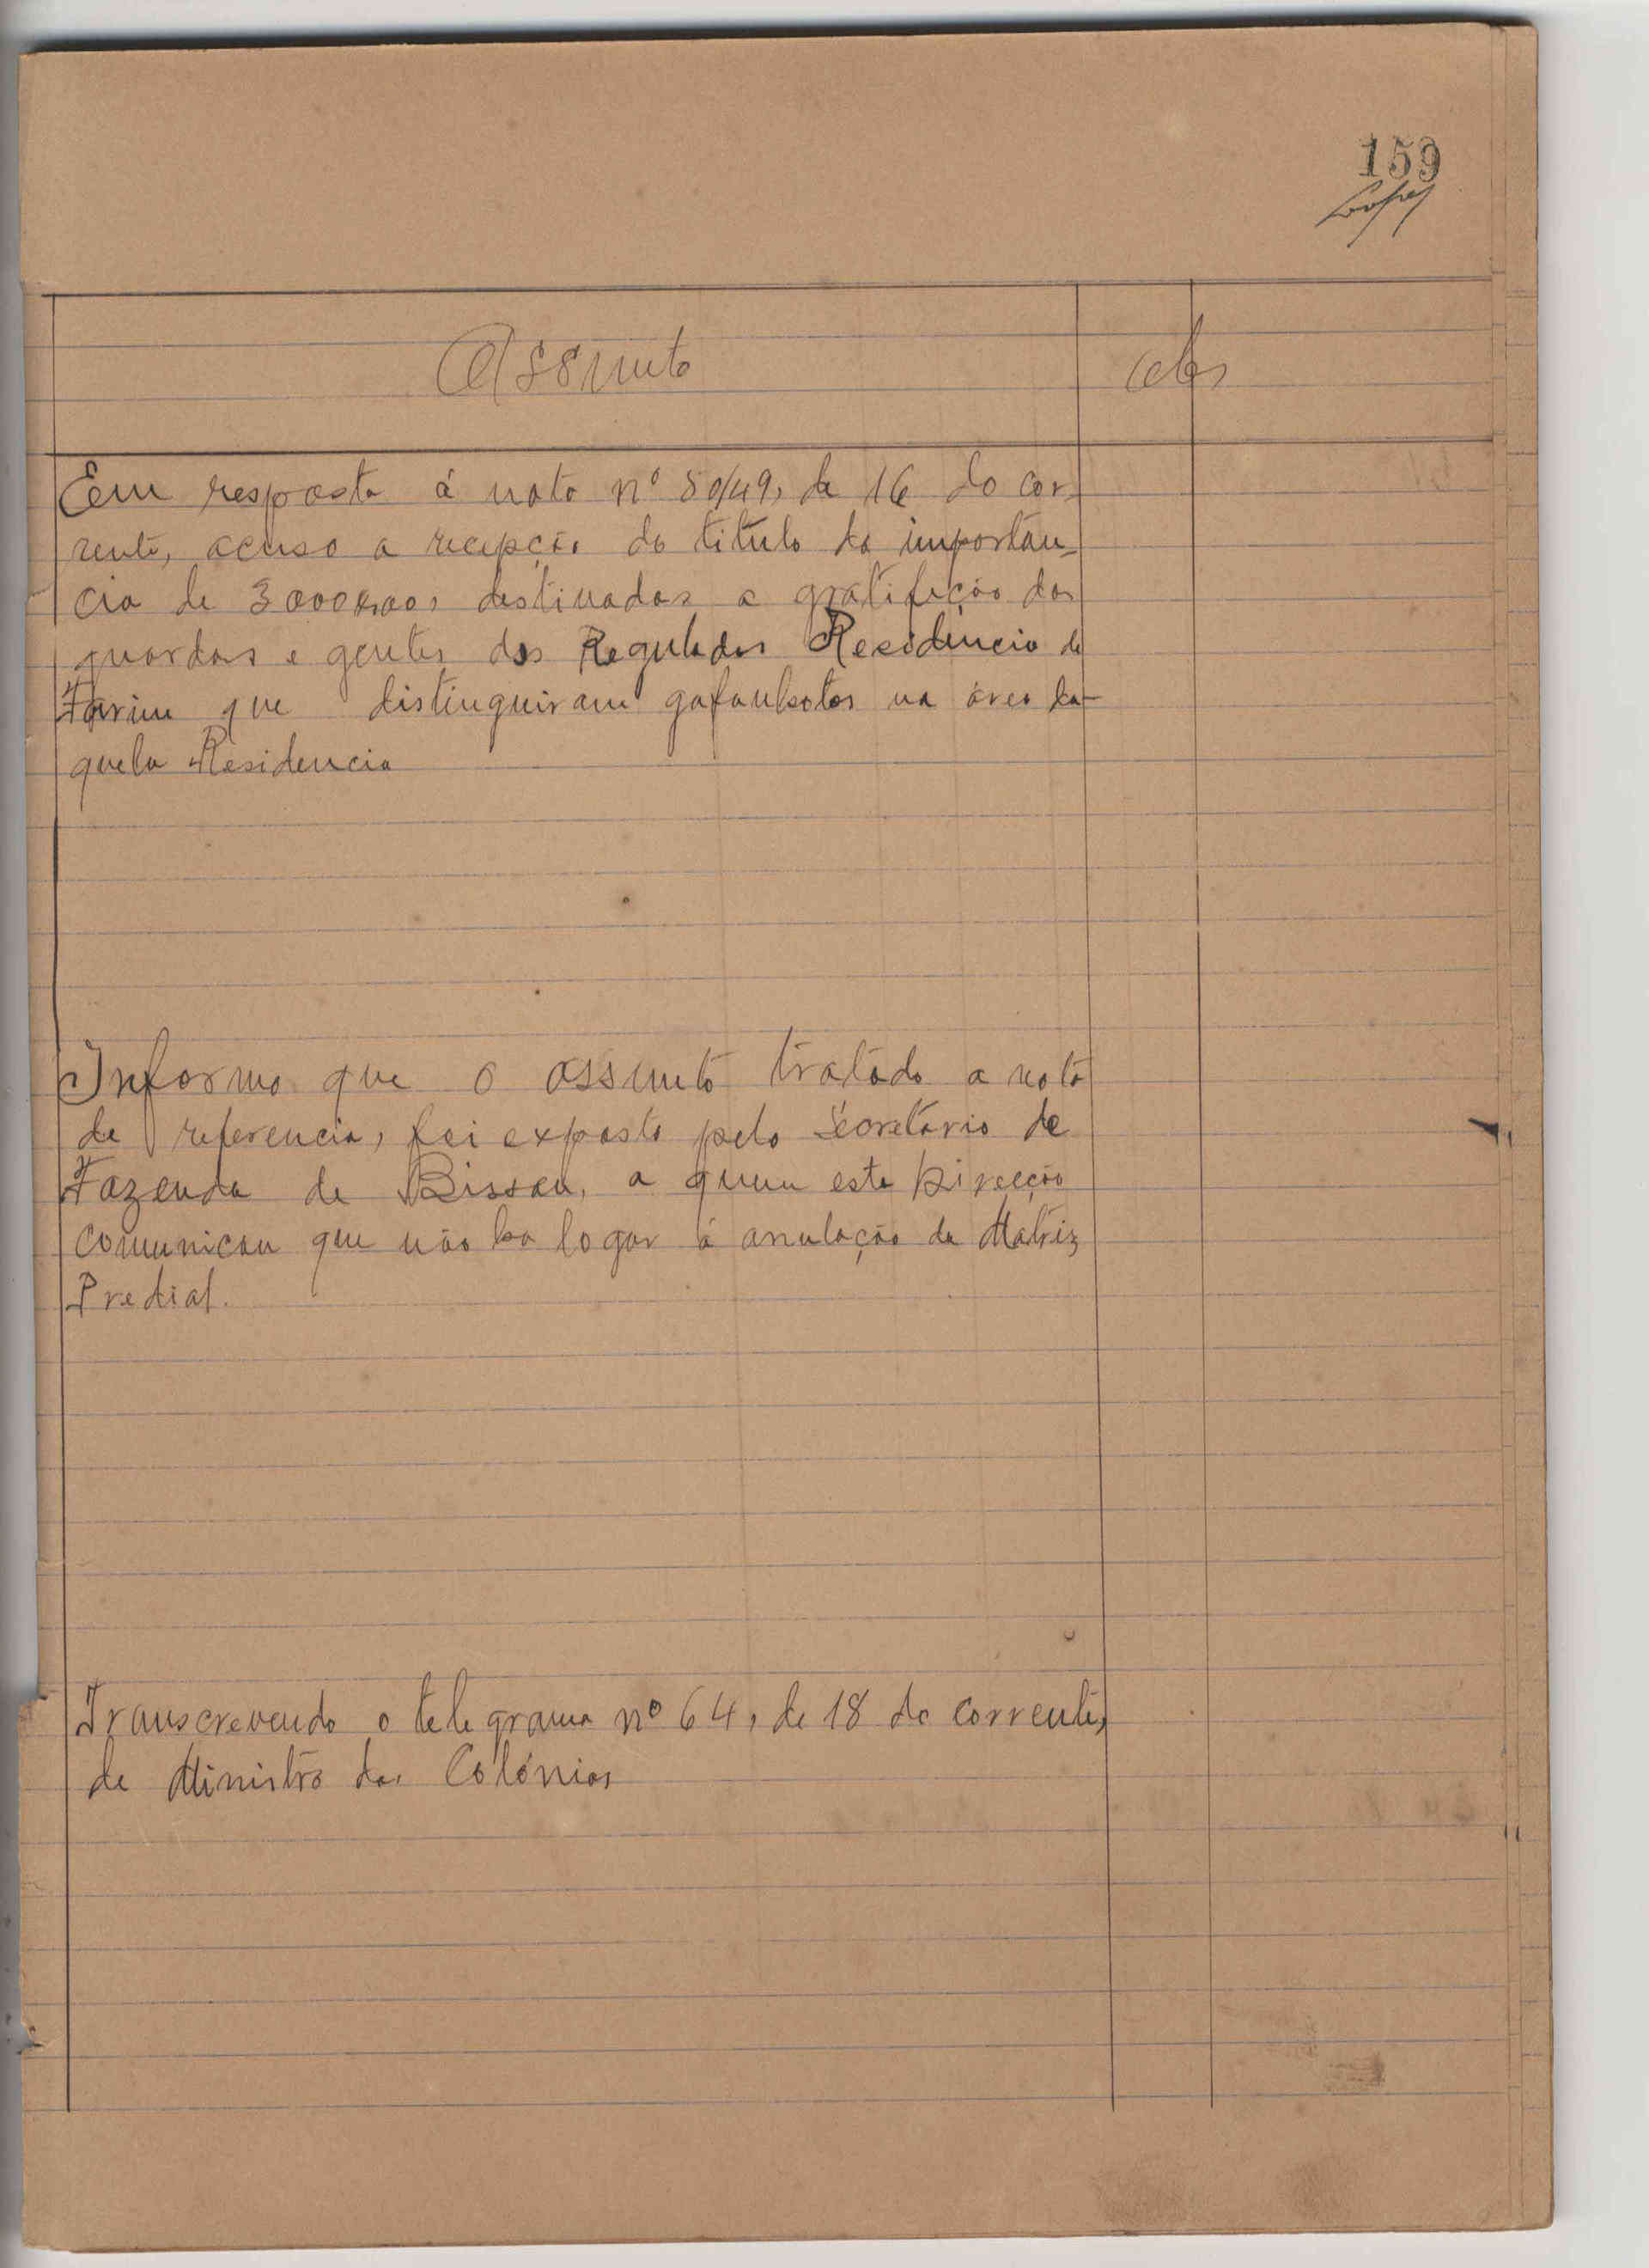 159
Lopes
Assunto
Em resposta á nota nº 50/49, de 16 do cor-
rente, acuso a recepção do titulo da importân-
cia de 3000$00, destinadas a gratifição dos
guardas e gentes dos Regulados Residência de
Farim que distinguiram gafanhotos na área da-
quela Residencia
Informo que o assunto tratado a nota
de referencia, foi exposto pelo Secretário de
Fazenda de Bissau, a quem esta Direcção
comunicou que não ha logar á anulação da Matriz
Predial.
Transcrevendo o telegrama nº 64, de 18 do corrente,
de Ministro das Colónias